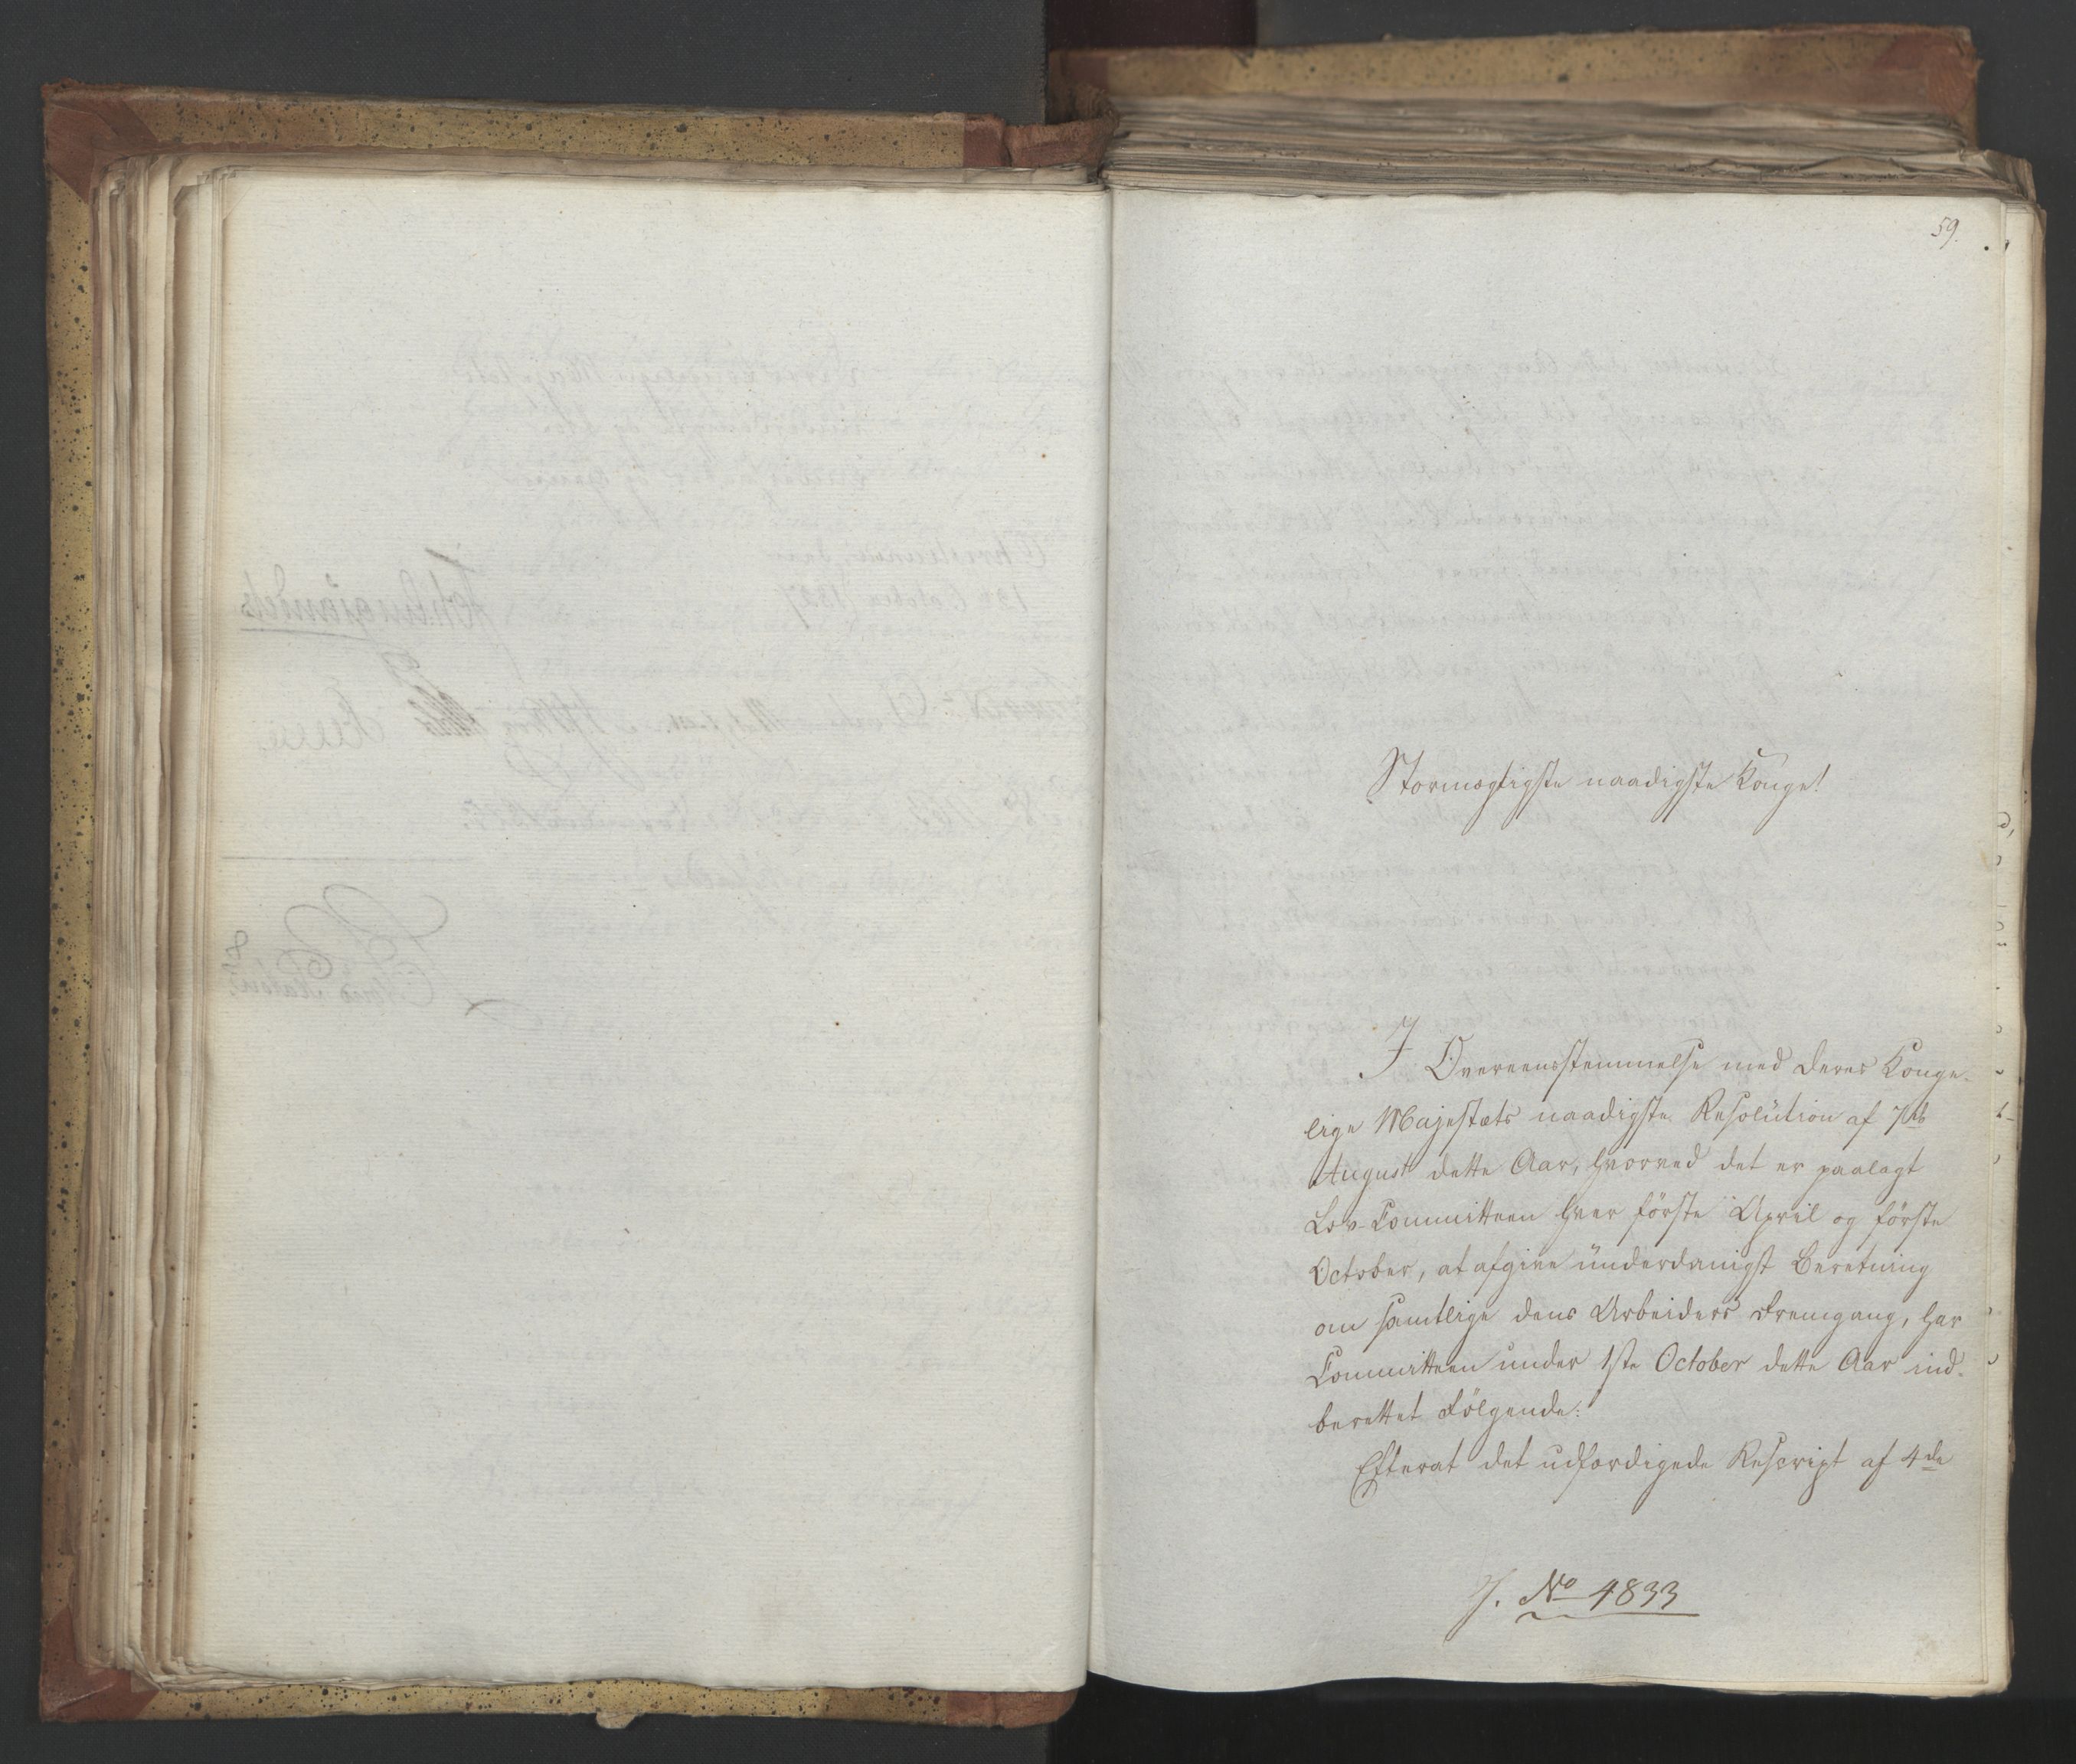 59.
Stormægtigste naadigste Konge!
I Overeensstemmelse med Deres Konge-
lige Majestæts naadigste Resolution af 7de
August dette Aar, hvorved det er paalagt
Lov-Committeen hver første April og første
October, at afgive underdanigst Beretning
om samtlige dens Arbeiders Fremgang, har
Committeen under 1ste October dette Aar ind-
berettet Følgende:
Efterat det udfærdigede Rescript af 4de
J. No 4833